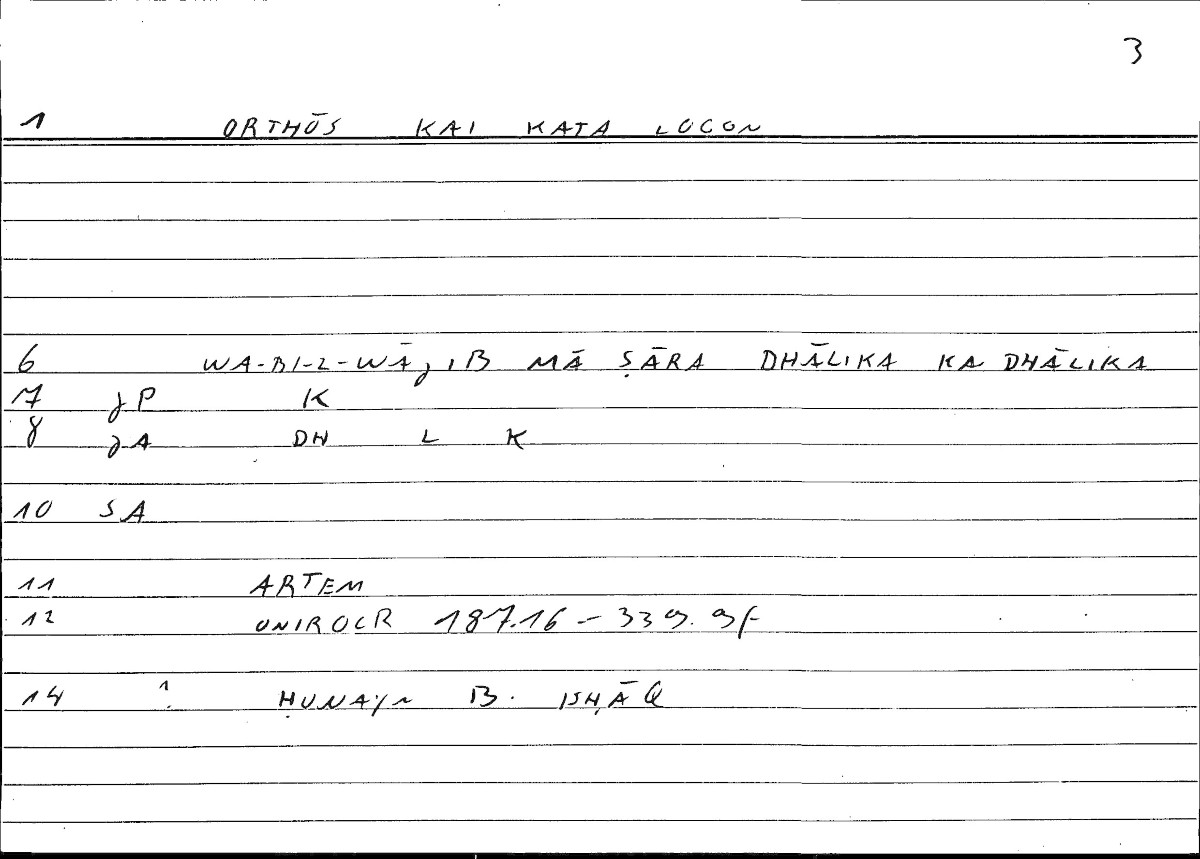 3
1 ORTHŌS KAI KATA LOGON
6 WA-BI-L-WĀJIB MĀ ṢĀRA DHĀLIKA KA DHĀLIKA
7 JP K
8 JA DH L K
10 SA
11 ARTEM
12 ONIROCR 187.16 - 339.9f
14 1 ḤUNAYN B. ISḤĀQ